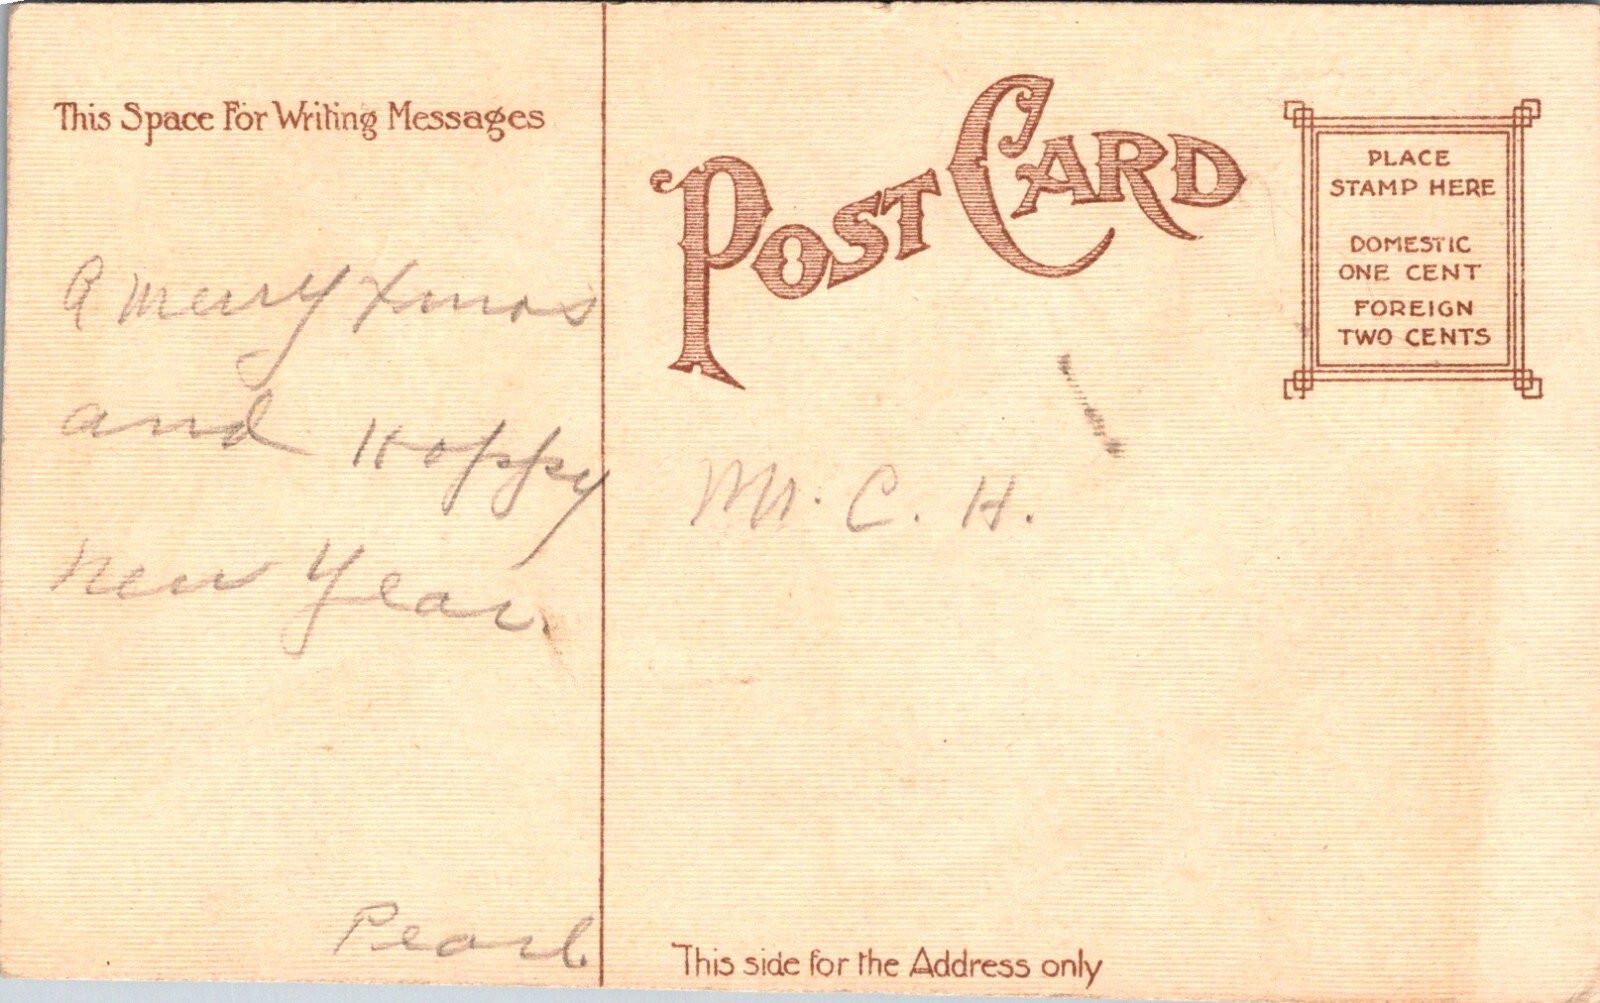 This Space For Writing Messages
POST CARD
PLACE
STAMP HERE
DOMESTIC
ONE CENT
FOREIGN
TWO CENTS
A Merry Xmas
and Happy
New Year.
Pearl.
Mr. C. H.
This side for the Address only